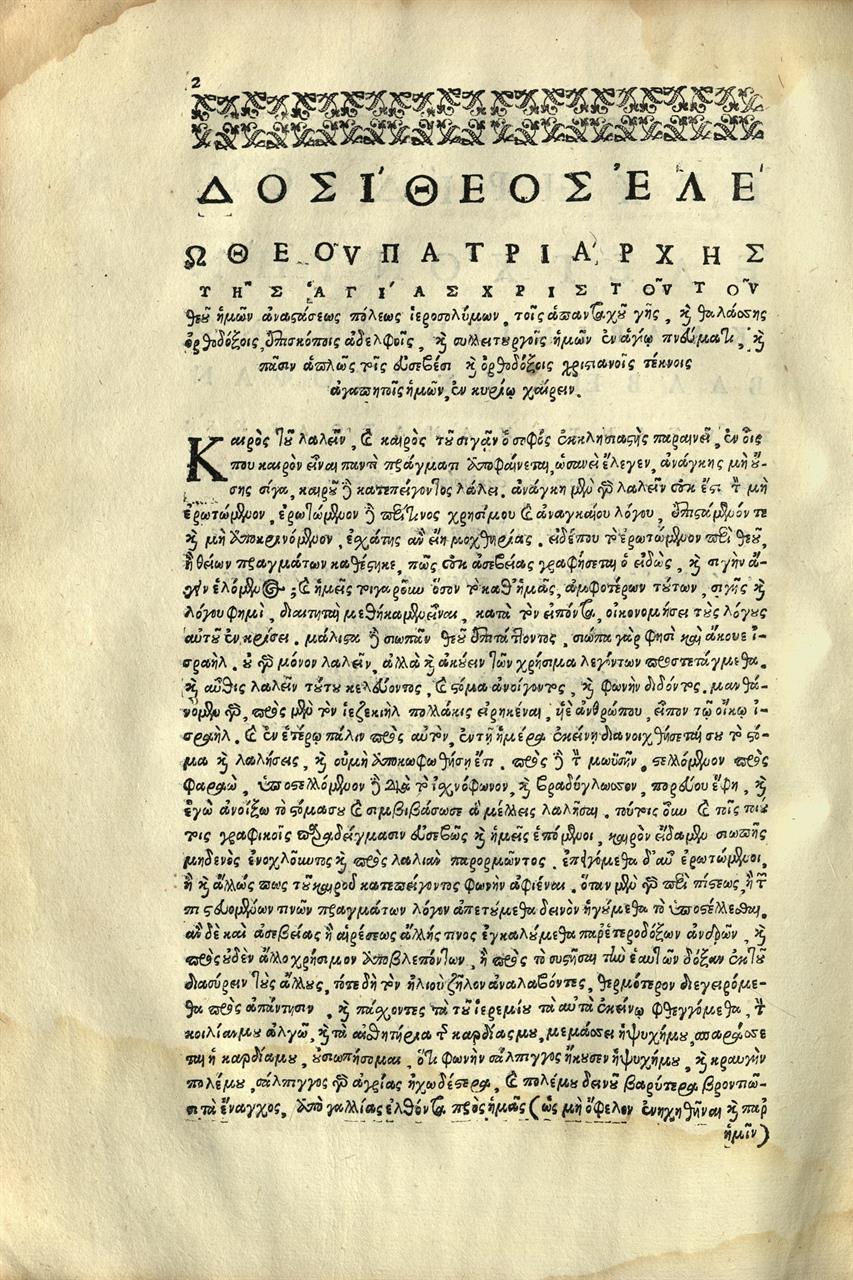 2
ΔΟΣΙ΄ΘΕΟΣ ἘΛΕ΄
Ω ΘΕΟΥ͂ ΠΑΤΡΙΑ΄ΡΧΗΣ
ΤΗ͂Σ ἉΓΙ΄ΑΣ ΧΡΙΣΤΟΥ͂ ΤΟΥ͂
θεοῦ ἡμῶν ἀναστάσεως πόλεως ἱεροσολύμων, τοῖς ἁπανταχοῦ γῆς, καὶ θαλάσσης
ὀρθοδόξοις, ἐπισκόποις ἀδελφοῖς, καὶ συλλειτουργοῖς ἡμῶν ἐν ἁγίῳ πνεύματι, καὶ
πᾶσιν ἁπλῶς τοῖς εὐσεβέσι καὶ ὀρθοδόξοις χριστιανοῖς τέκνοις
ἀγαπητοῖς ἡμῶν, ἐν κυρίῳ χαίρειν.
Καιρὸς τοῦ λαλεῖν, καὶ καιρὸς τοῦ σιγᾶν ὁ σοφὸς ἐκκλησιαστὴς παραινεῖ, ἐν οἷς
που καιρὸν εἶναι παντὶ πράγματι ἀποφαίνεται, ὡσανεὶ ἔλεγεν, ἀνάγκης μὴ οὔ-
σης σίγα, καιροῦ δὲ κατεπείγοντος λάλει. ἀνάγκη μὲν γὰρ λαλεῖν οὐκ ἔστι τὸν μὴ
ἐρωτώμενον, ἐρωτώμενον δὲ περί τινος χρησίμου καὶ ἀναγκαίου λόγου, ἐπιστάμενόν τε
καὶ μὴ ἀποκρινόμενον, ἐσχάτης ἂν εἴη μοχθηρίας. εἰδέπου τὸ ἐρωτώμενον περὶ θεοῦ,
ἢ θείων πραγμάτων καθέστηκε, πῶς οὐκ ἀσεβείας γραφήσεται ὁ εἰδὼς, καὶ σιγὴν ἄ-
γειν ἑλόμενος; καὶ ἡμεῖς τιγαροῦν ὅσον τὸ καθ' ἡμᾶς, ἀμφοτέρων τούτων, σιγῆς καὶ
λόγου φημὶ, διαιτηταὶ μεθήκαμεν εἶναι, κατὰ τὸν εἰπόντα, οἰκονομήσει τοὺς λόγους
αὐτοῦ ἐν κρίσει. μάλιστα δὲ σιωπᾶν θεοῦ ἐπιτάττοντος, σιώπα γάρ φησι καὶ ἄκουε ἰ-
σραήλ. οὐ γὰρ μόνον λαλεῖν, ἀλλὰ καὶ ἀκούειν τῶν χρήσιμα λεγόντων προστετάγμεθα.
καὶ αὖθις λαλεῖν τούτου κελεύοντος, καὶ στόμα ἀνοίγοντος, καὶ φωνὴν διδόντος. μανθά-
νομεν γὰρ, πρὸς μὲν τὸν ἰεζεκιὴλ πολλάκις εἰρηκέναι, υἱὲ ἀνθρώπου, εἶπον τῷ οἴκῳ ἰ-
σραήλ. καὶ ἐν ἑτέρῳ πάλιν πρὸς αὐτὸν, ἐν τῇ ἡμέρᾳ ἐκείνῃ διανοιχθήσεταί σου τὸ στό-
μα καὶ λαλήσεις, καὶ οὐ μὴ ἀποκωφωθήσῃ ἔτι. πρὸς δὲ τὸν μωϋσῆν στελλόμενον πρὸς
φαραὼ, ὑποστελλόμενον δὲ διὰ τὸ ἰσχνόφωνον, καὶ βραδύγλωσσον, πορεύου ἔφη, καὶ
ἐγὼ ἀνοίξω τὸ στόμα σου καὶ συμβιβάσω σε ἃ μέλλεις λαλῆσαι. τούτοις οὖν καὶ τοῖς τοιού
τοις γραφικοῖς παραδείγμασιν εὐσεβῶς καὶ ἡμεῖς ἑπόμενοι, καιρὸν εἴδαμεν σιωπῆς
μηδενὸς ἐνοχλοῦντος καὶ πρὸς λαλιὰν παρορμῶντος. ἐπειγόμεθα δ' αὖ ἐρωτώμενοι,
ἢ καὶ ἄλλως πως τοῦ καιροῦ κατεπείγοντος φωνὴν ἀφιέναι. ὅταν μὲν γὰρ περὶ πίστεως, ἢ τῶν
πιστευομένων τινῶν πραγμάτων λόγον ἀπαιτώμεθα δεινὸν ἡγούμεθα τὸ ὑποστέλλεσθαι.
ἂν δὲ καὶ ἀσεβείας ἢ αἱρέσεως ἄλλης τινος ἐγκαλώμεθα παρ' ἑτεροδόξων ἀνδρῶν, καὶ
πρὸς οὐδὲν ἄλλο χρήσιμον ἀποβλεπόντων, ἢ πρὸς τὸ συστῆσαι τὴν ἑαυτῶν δόξαν ἐκ τοῦ
διασύρειν τοὺς ἄλλους, τότε δὴ τὸν ἠλιοὺ ζῆλον ἀναλαβόντες, θερμότερον διεγειρόμε-
θα πρὸς ἀπάντησιν, καὶ πάσχοντες τὰ τοῦ ἱερεμίου ταὐτὰ ἐκείνῳ φθεγγόμεθα, τὴν
κοιλίαν μου ἀλγῶ, καὶ τὰ αἰσθητήρια τῆς καρδίας μου, μεμάσσει ἡ ψυχή μου, σπαράσσε
ται ἡ καρδία μου, οὐ σιωπήσομαι, ὅτι φωνὴν σάλπιγγος ἤκουσεν ἡ ψυχή μου, καὶ κραυγὴν
πολέμου, σάλπιγγος γὰρ ἀγρίας ἠχωδέστερα, καὶ πολέμου δεινοῦ βαρύτερα βροντῶ-
σι τὰ ἔναγχος, ἀπὸ γαλλίας ἐλθόντα πρὸς ἡμᾶς (ὡς μὴ ὄφελον ἐνηχηθῆναι καὶ παρ'
ἡμῖν)